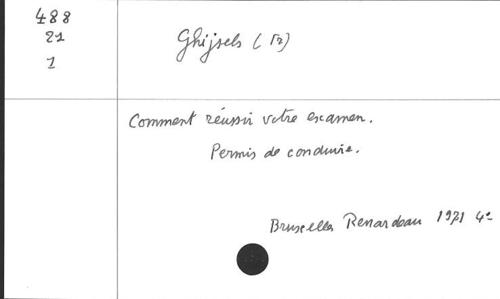 488
21
1
Ghijsels (
Comment réussir votre examen.
Permis de conduire.
Bruxelles Renardeau 1971 4°